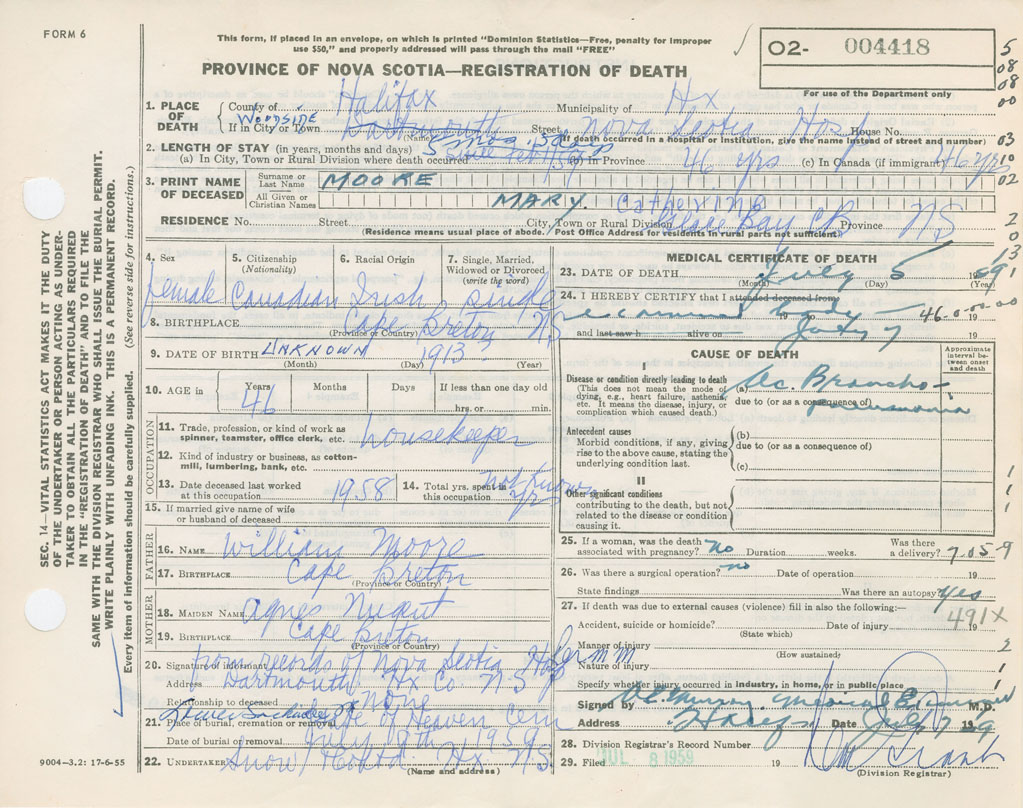 FORM 6
This form, if placed in an envelope, on which is printed "Dominion Statistics—Free, penalty for improper
use $50," and properly addressed will pass through the mail "FREE"
PROVINCE OF NOVA SCOTIA—REGISTRATION OF DEATH
O2- 004418
For use of the Department only
5
08
08
00
03
10
02
2
0
13
1. PLACE OF DEATH { County of Halifax Municipality of Hx
Woodside
If in City or Town Dartmouth Street Nova Scotia Hosp House No.
(Name) (If death occurred in a hospital or institution, give the name instead of street and number)
2. LENGTH OF STAY (in years, months and days) 5 mos. 5 days
(a) In City, Town or Rural Division where death occurred (b) In Province 46 yrs (c) In Canada (if immigrant) 46 yrs
3. PRINT NAME OF DECEASED
Surname or Last Name MOORE
All Given or Christian Names MARY Catherine
RESIDENCE No. Street City, Town or Rural Division Glace Bay CB Province NS
(Residence means usual place of abode. Post Office Address for residents in rural parts not sufficient)
4. Sex
female
5. Citizenship
(Nationality)
Canadian
6. Racial Origin
Irish
7. Single, Married,
Widowed or Divorced
(write the word)
single
8. BIRTHPLACE Cape Breton NS
(Province or Country)
9. DATE OF BIRTH UNKNOWN 1913
(Month) (Day) (Year)
10. AGE in Years Months Days If less than one day old
46 hrs. or min.
OCCUPATION
11. Trade, profession, or kind of work as
spinner, teamster, office clerk, etc. housekeeper
12. Kind of industry or business, as cotton-
mill, lumbering, bank, etc.
13. Date deceased last worked
at this occupation 1958
14. Total yrs. spent in
this occupation not known
15. If married give name of wife
or husband of deceased
FATHER
16. NAME William Moore
17. BIRTHPLACE Cape Breton
(Province or Country)
MOTHER
18. MAIDEN NAME Agnes Nugent
19. BIRTHPLACE Cape Breton
(Province or Country)
20. Signature of informant from records of Nova Scotia Hosp
Address Dartmouth Hx Co N.S
Relationship to deceased None
21. Place of burial, cremation or removal Gate of Heaven Cem
Date of burial or removal July 8th 1959
22. UNDERTAKER Snow Hx N.S.
(Name and address)
MEDICAL CERTIFICATE OF DEATH
23. DATE OF DEATH July 5 1959
(Month) (Day) (Year)
24. I HEREBY CERTIFY that I attended deceased from
examined body 46-0-00-00 19
and last saw h alive on July 7 19
CAUSE OF DEATH
Approximate
interval be-
tween onset
and death
I
Disease or condition directly leading to death
(This does not mean the mode of
dying, e.g., heart failure, asthenia,
etc. It means the disease, injury, or
complication which caused death.)
(a) Ac. Broncho-
due to (or as a consequence of) pneumonia
Antecedent causes
Morbid conditions, if any, giving
rise to the above cause, stating the
underlying condition last.
(b)
due to (or as a consequence of)
(c)
II
Other significant conditions
contributing to the death, but not
related to the disease or condition
causing it.
25. If a woman, was the death
associated with pregnancy? No Duration weeks. Was there
a delivery? 7.05-9
26. Was there a surgical operation? no Date of operation 19
State findings Was there an autopsy? Yes
27. If death was due to external causes (violence) fill in also the following:—
491X
Accident, suicide or homicide? Date of injury 19
(State which)
Manner of injury
(How sustained)
Nature of injury
Specify whether injury occurred in industry, in home, or in public place
Signed by Murray Medical Examiner M.D.
Address Halifax Date July 7 1959
28. Division Registrar's Record Number
29. Filed JUL 8 1959 19
(Division Registrar)
SEC. 14—VITAL STATISTICS ACT MAKES IT THE DUTY
OF THE UNDERTAKER OR PERSON ACTING AS UNDER-
TAKER TO OBTAIN ALL THE PARTICULARS REQUIRED
IN THE "REGISTRATION OF DEATH" AND TO FILE THE
SAME WITH THE DIVISION REGISTRAR WHO SHALL ISSUE THE BURIAL PERMIT.
WRITE PLAINLY WITH UNFADING INK. THIS IS A PERMANENT RECORD.
Every item of information should be carefully supplied. (See reverse side for instructions.)
9004-3.2: 17-6-55